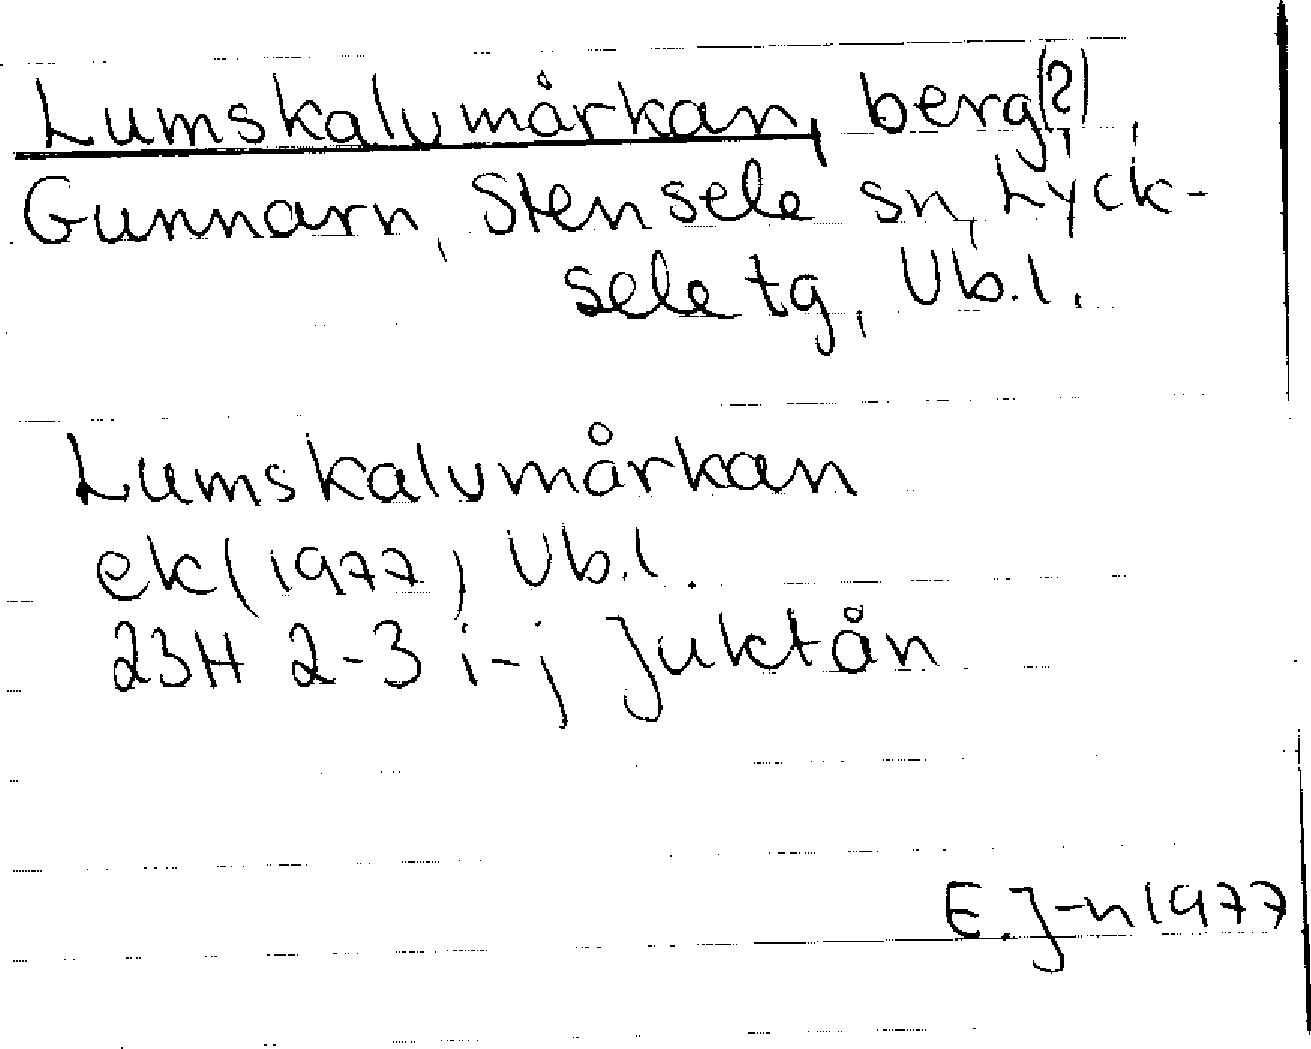 Lumskalvmårkan, berg(?),
Gunnarn, Stensele sn, Lyck-
sele tg, Vb.l.
Lumskalvmårkan
ek (1977) Vb.l.
23H 2-3 i-j Juktån
E.J-n 1977